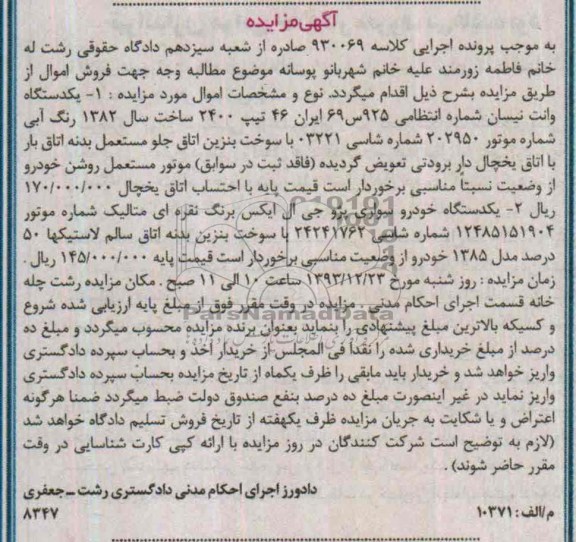 آگهی مزایده
به موجب پرونده اجرایی کلاسه ۹۳۰۰۶۹ صادره از شعبه سیزدهم دادگاه حقوقی رشت له
خانم فاطمه زورمند علیه خانم شهربانو پوسانه موضوع مطالبه وجه جهت فروش اموال از
طریق مزایده بشرح ذیل اقدام میگردد. نوع و مشخصات اموال مورد مزایده : ۱- یکدستگاه
وانت نیسان شماره انتظامی ۹۲۵س۶۹ ایران ۴۶ تیپ ۲۴۰۰ ساخت سال ۱۳۸۲ رنگ آبی
شماره موتور ۲۰۲۹۵۰ شماره شاسی ۰۳۲۲۱ با سوخت بنزین اتاق جلو مستعمل بدنه اتاق بار
با اتاق یخچال دار برودتی تعویض گردیده (فاقد ثبت در سوابق) موتور مستعمل روشن خودرو
از وضعیت نسبتاً مناسبی برخوردار است قیمت پایه با احتساب اتاق یخچال ۱۷۰/۰۰۰/۰۰۰
ریال ۲- یکدستگاه خودرو سواری پژو جی ال ایکس برنگ نقره ای متالیک شماره موتور
۱۲۴۸۵۱۵۱۹۰۴ شماره شاسی ۲۴۲۴۱۷۶۲ با سوخت بنزین بدنه اتاق سالم لاستیکها ۵۰
درصد مدل ۱۳۸۵ خودرو از وضعیت مناسبی برخوردار است قیمت پایه ۱۴۵/۰۰۰/۰۰۰ ریال .
زمان مزایده : روز شنبه مورخ ۱۳۹۳/۱۲/۲۳ ساعت ۱۰ الی ۱۱ صبح . مکان مزایده رشت چله
خانه قسمت اجرای احکام مدنی . مزایده در وقت مقرر فوق از مبلغ پایه ارزیابی شده شروع
و کسیکه بالاترین مبلغ پیشنهادی را بنماید بعنوان برنده مزایده محسوب میگردد و مبلغ ده
درصد از مبلغ خریداری شده را نقداً فی المجلس از خریدار اخذ و بحساب سپرده دادگستری
واریز خواهد شد و خریدار باید مابقی را ظرف یکماه از تاریخ مزایده بحساب سپرده دادگستری
واریز نماید در غیر اینصورت مبلغ ده درصد بنفع صندوق دولت ضبط میگردد ضمنا هرگونه
اعتراض و یا شکایت به جریان مزایده ظرف یکهفته از تاریخ فروش تسلیم دادگاه خواهد شد
(لازم به توضیح است شرکت کنندگان در روز مزایده با ارائه کپی کارت شناسایی در وقت
مقرر حاضر شوند) .
دادورز اجرای احکام مدنی دادگستری رشت ــ جعفری
م/الف: ۱۰۳۷۱
۸۳۴۷
ParsNamadData